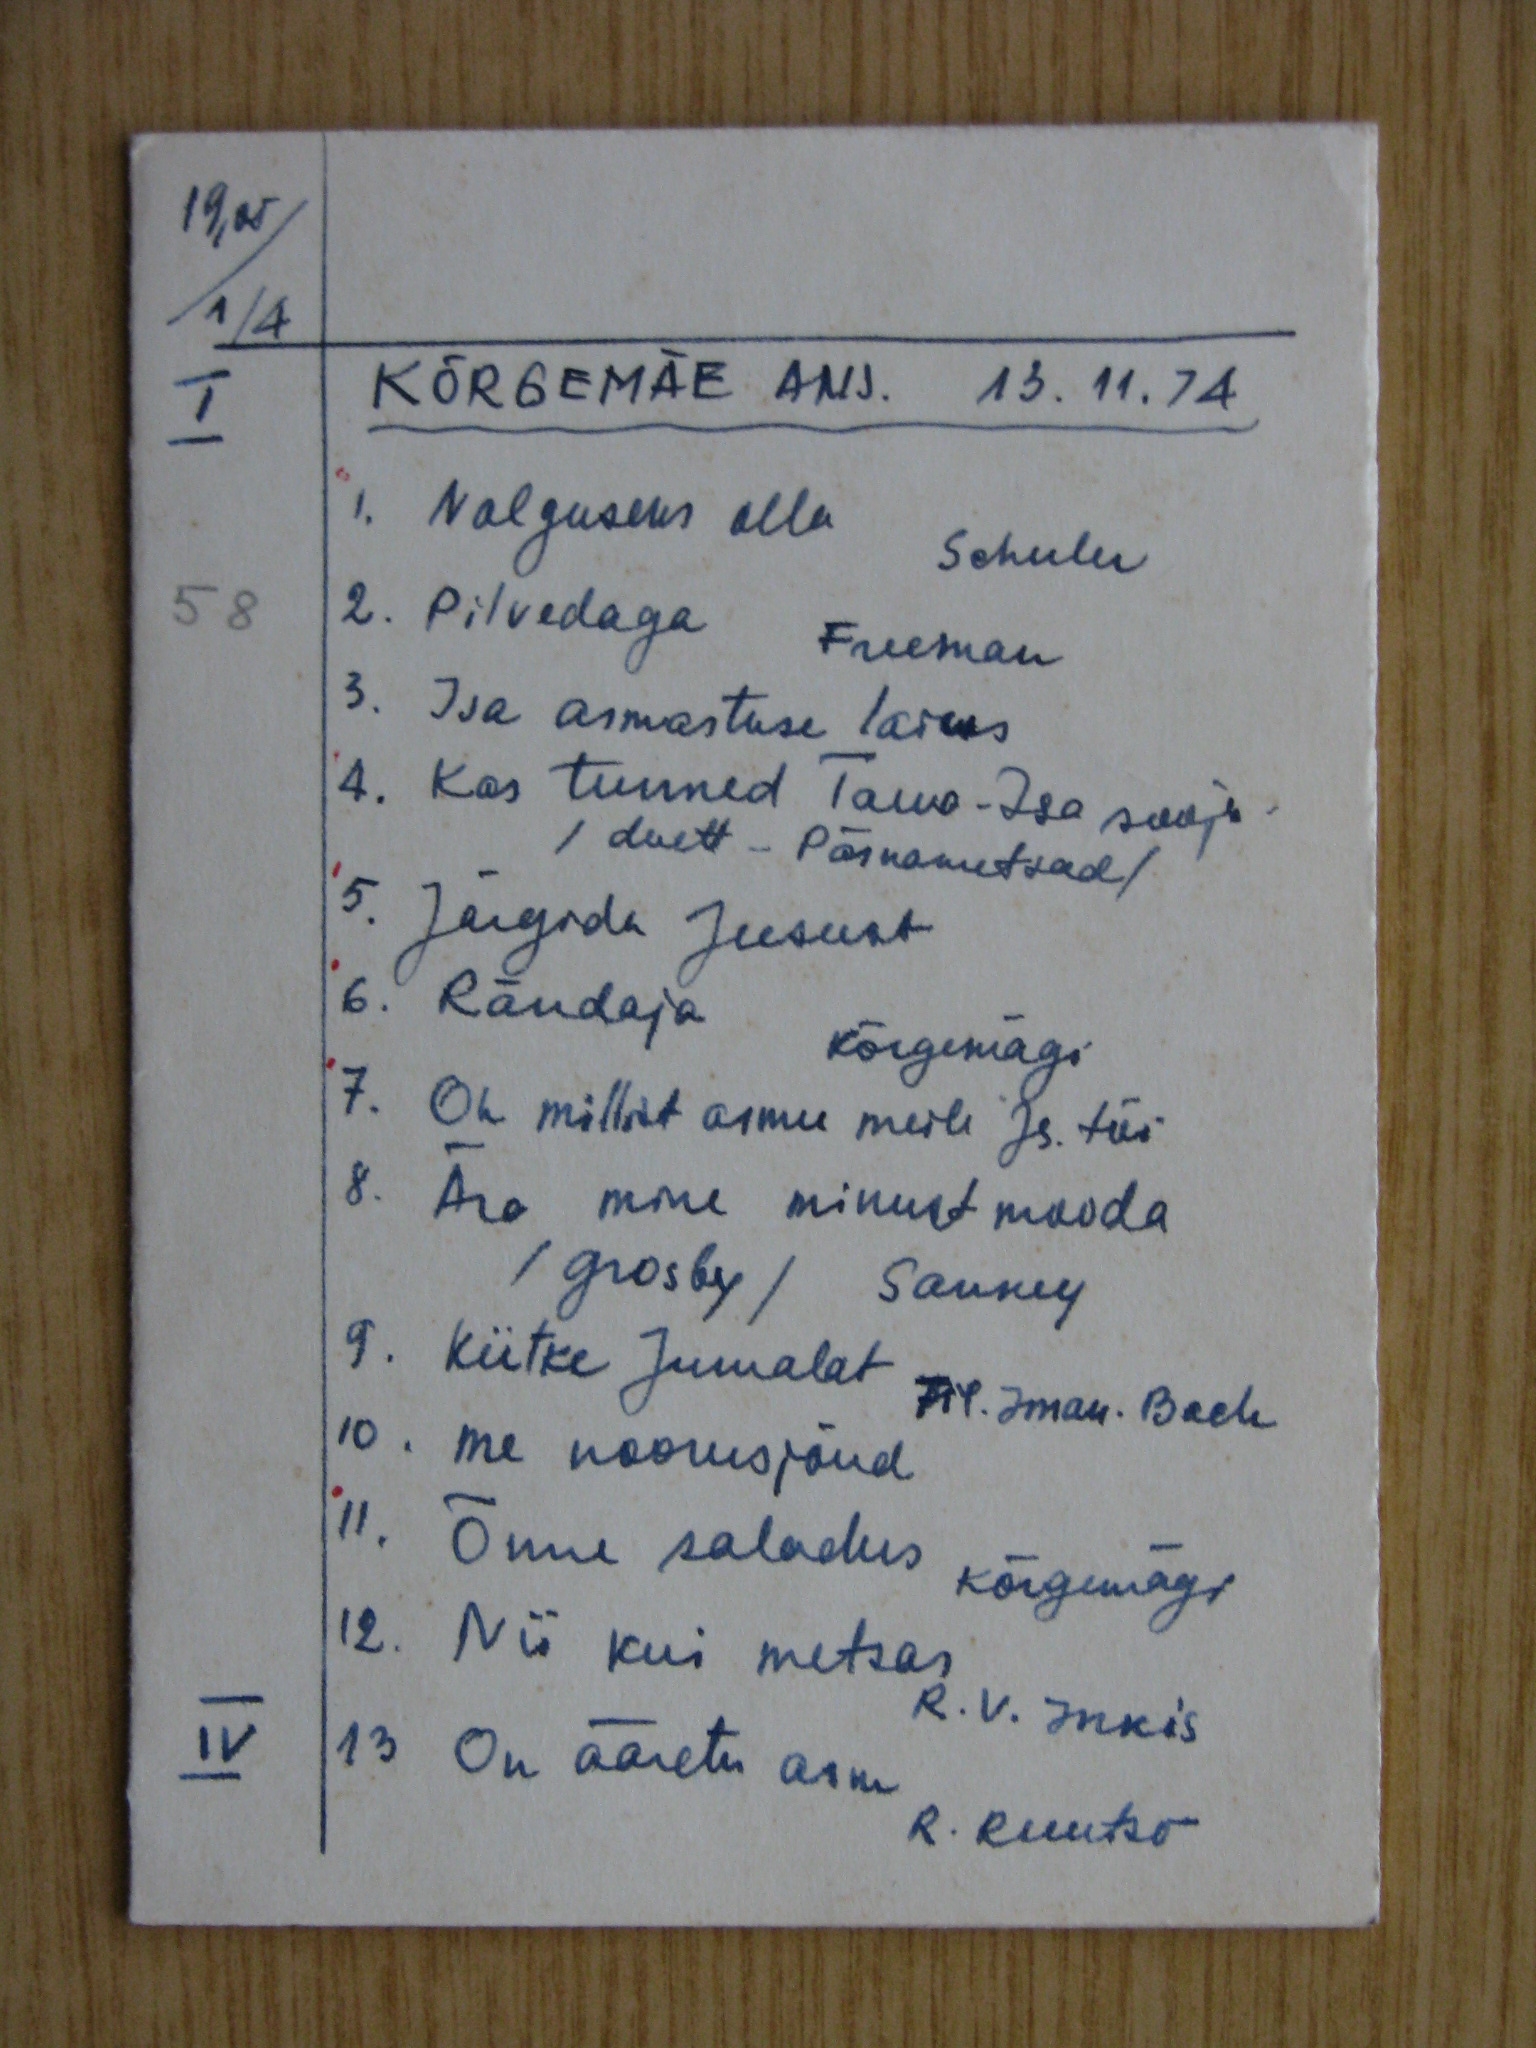 19,05
1/4
I
KÕRGEMÄE ANS. 13.11.74
1. Valguseks olla
Schuler
58
2. Pilvedaga
Freeman
3. Isa armastuse laius
4. Kas tunned Taeva-Isa sooja
/ duett - Pärnametsad /
5. Järgida Jeesust
6. Rändaja
Kõrgemägi
7. Oh millist armu meile Js. tõi
8. Ära mine minust mööda
/ Grosby / Sankey
9. Kiitke Jumalat
Fil. Iman. Bach
10. Me noorusjõud
11. Õnne saladus
Kõrgemägi
12. Nii kui metsas
R. V. Inkis
IV
13 On ääretu arm
R. Ruutso